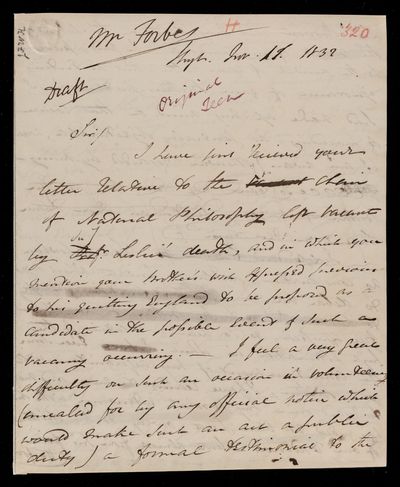 Mr Forbes
320
Nov. 17. 1832
Draft
Original
Seen
Sir/
I have just received your
letter relative to the vacant chair
of Natural Philosophy left vacant
by Sir J Leslie's death, and in which you
mention your brother's wish expressed previous
to his quitting England to be proposed as
candidate in the possible event of such a
vacancy occurring. — I feel a very great
difficulty on such an occasion in volunteering
(uncalled for by any official notice which
would make such an act a public
duty) a formal testimonial to the